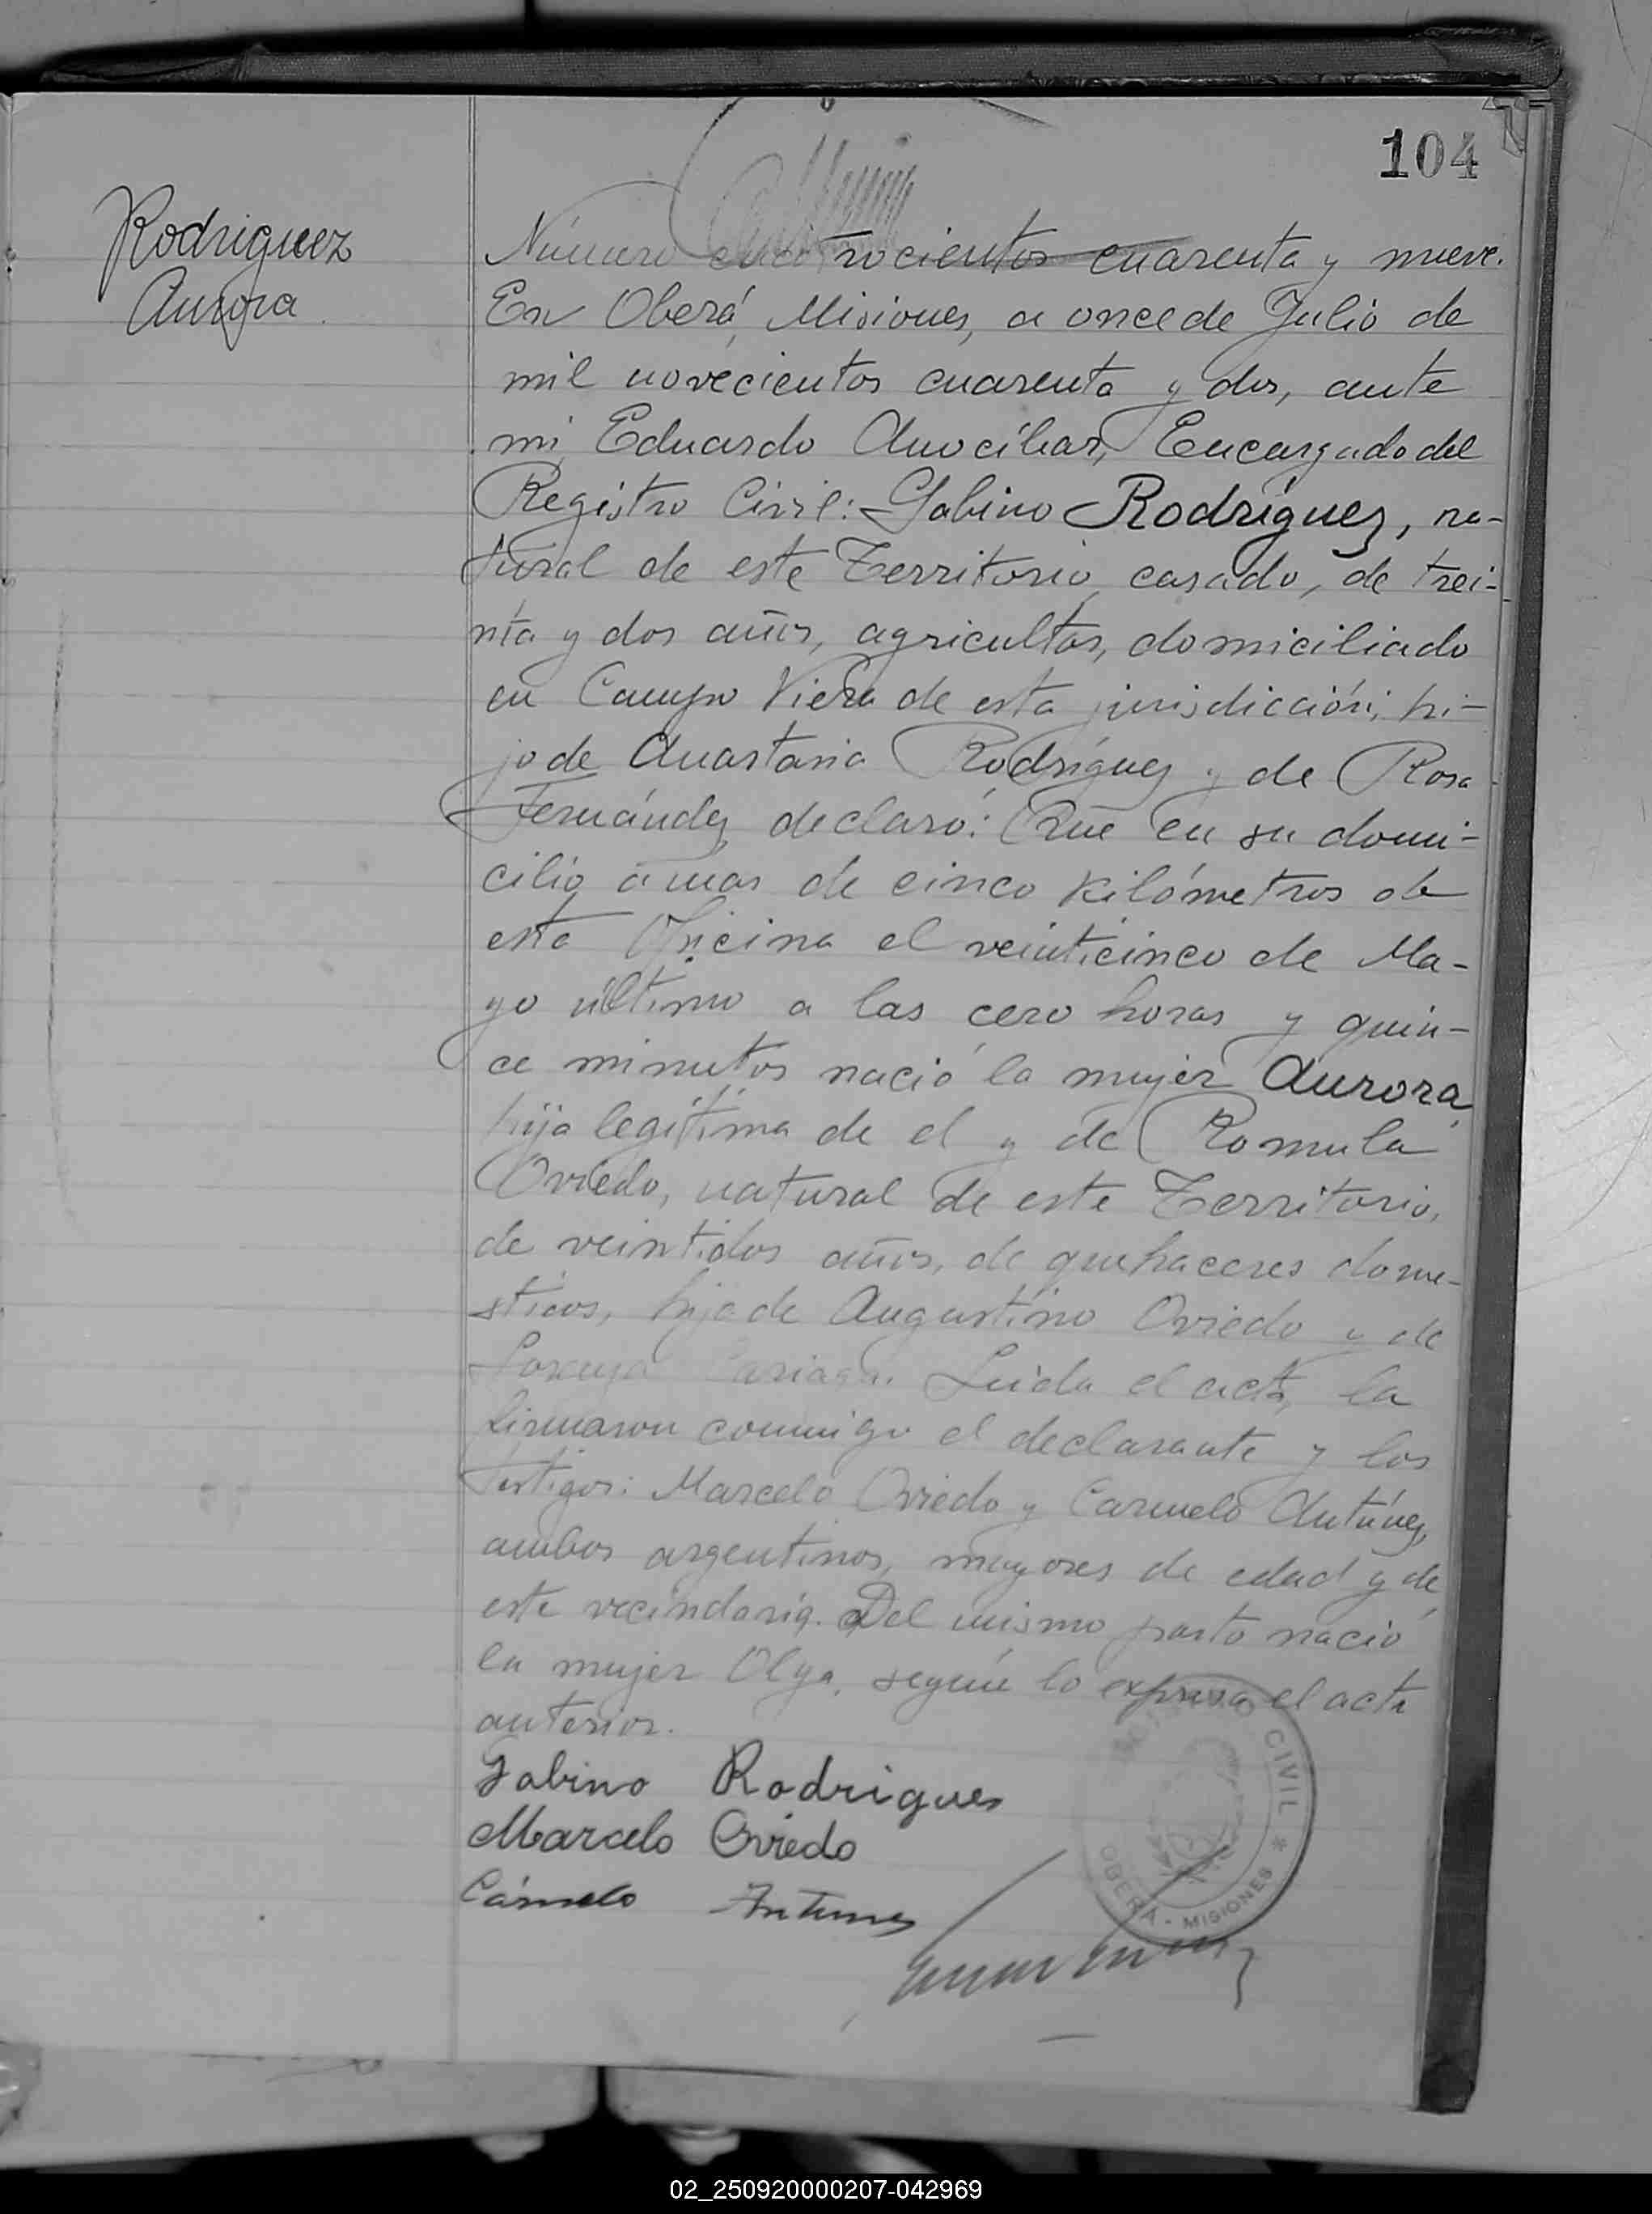 104
Rodriguez
Aurora
Número cuatrocientos cuarenta y nueve.
En Oberá, Misiones, a once de Julio de
mil novecientos cuarenta y dos, ante
mi, Eduardo Anocíbar, Encargado del
Registro Civil: Gabino Rodríguez, na-
tural de este Territorio, casado, de trei-
nta y dos años, agricultor, domiciliado
en Campo Viera de esta jurisdicción, hi-
jo de Anastasia Rodríguez y de Rosa
Fernández, declaró: Que en su domi-
cilio, a mas de cinco kilómetros de
esta Oficina el veinticinco de Ma-
yo último a las cero horas y quin-
ce minutos nació la mujer Aurora,
hija legítima de el y de Romula
Oviedo, natural de este Territorio,
de veintidos años, de quehaceres dome-
sticos, hija de Augustino Oviedo y de
Leida el acta, la
firmaron conmigo el declarante y los
testigos: Marcelo Oviedo y Carmelo Antúnez,
ambos argentinos, mayores de edad y de
este vecindario. Del mismo parto nació
la mujer Olga, según lo expresa el acta
anterior.
Gabino Rodrigues
Marcelo Oviedo
Cármelo Antunes
CIVIL * OBERA - MISIONES
02_250920000207-042969